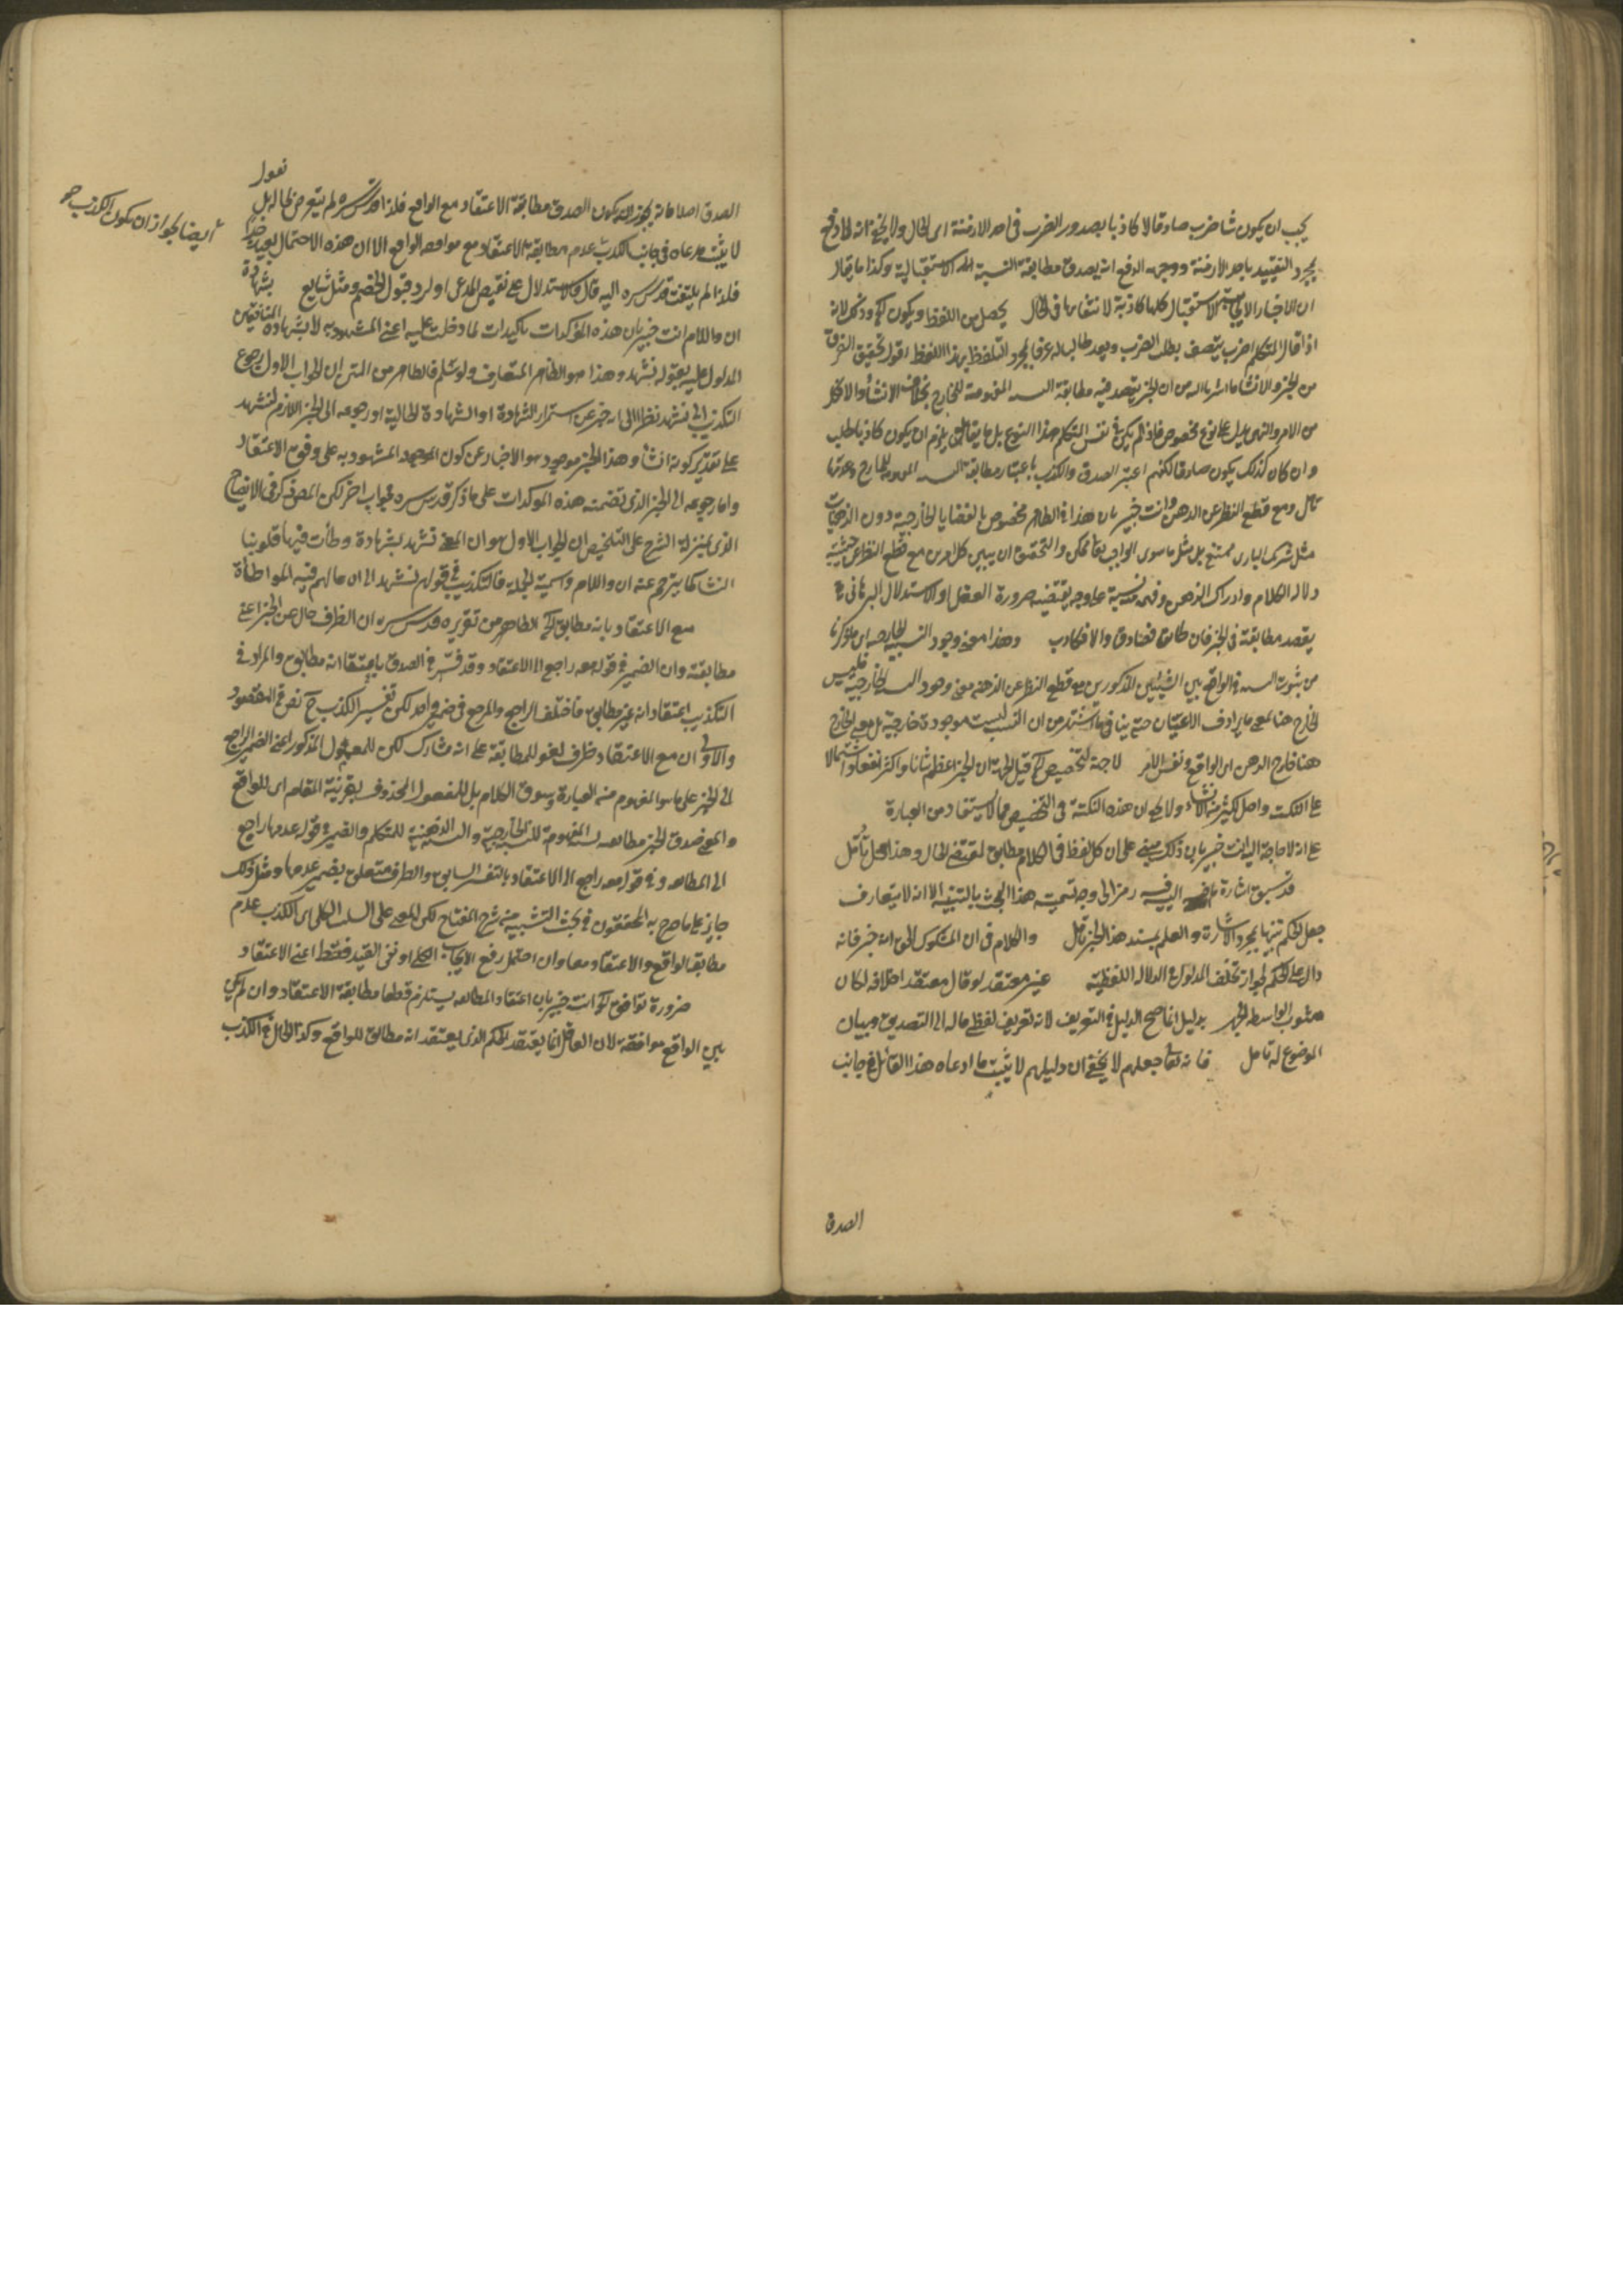 يجب ان يكون شاضرب صادقا لا كاذبا بصدور الضرب فى احد الازمنة اى الحال ولا يخفى انه اندفع
بمجرد التقييد باحد الازمنة ووجه الدفع انه يصدق مطابقة النسبة الاستقبالية وكذا ما يقال
ان الاخبار الاستقبال كلها كاذبة لانتفائها فى الحال يحصل من اللفظ ويكون الخ وذلك لانه
اذا قال المتكلم اضرب يتصف بطلب الضرب ويعد طالبا له عرفا بمجرد التلفظ بهذا اللفظ اقول تحقيق الفرق
من الخبر والانشاء ما اشرنا اليه من ان الخبر يقصد فيه مطابقة النسبه المفهومة للخارج بخلاف الانشاء والا فكل
من الامر والنهى يدل على نوع مخصوص فاذا لم يكن فى نفس المتكلم هذا النوع بل ما يقابله يلزم ان يكون كاذبا طلب
وان كان كذلك يكون صادقا لكنهم اعتبر الصدق والكذب باعتبار مطابقة النسبه المفهومه للخارج وعدمها
تأمل ومع قطع النظر عن الذهن وانت خبير بان هذا فى الظاهر مخصوص بالقضايا الخارجية دون الذهنيات
مثل شريك البارى ممتنع بل مثل ما سوى الواجب تعالى ممكن والتحقيق ان يبين كل امرين مع قطع النظر عن حيثية
دلالة الكلام وادراك الذهن وفهمه نسبة على وجه يقتضيه ضرورة العقل او الاستدلال البرهانى
يقصد مطابقة فى الخبر فان طابق فصادق والا فكاذب وهذا معنى وجود النسبة الخارجيه اى ما ذكرنا
من ثبوت النسبه فى الواقع بين الشيئين المذكورين مع قطع النظر عن الذهن معنى وجود النسبه الخارجية فليس
الخارج هنا بمعنى ما يرادف الاعيان حتى ينافى ما اشتهر من ان النسب ليست موجودة خارجية بل معنى الخارج
هنا خارج الذهن اى الواقع ونفس الامر لا جهة لتخصيص الخ قيل الجهة ان الخبر اعظم شانا واكثر نفعا واشتمالا
على النكت واصل لكثير من الانشاء ولا يخفى ان هذه النكتة فى التخصيص مما لا يستفاد من العبارة
على انه لا حاجة اليه انت خبير بان ذلك مبنى على ان كل لفظ فى الكلام مطابق لمقتضى الحال وهذا محل تأمل
قد سبق اشارة ما اليه فيه رمز الى وجه تسمية هذا البحث بالتنبيه الا انه لا يتعارف
جعل الحكم تنبيها بمجرد الاشارة والعلم بسند هذا الخبر تأمل والكلام فى ان المشكوك الخ اى خبر فانه
دال على الحكم لجواز تخلف المدلول عن الدلالة اللفظية غير معتقد لو قال معتقد اخلافه لكان
بدليل انما صح الدليل فى التعريف لانه تعريف لفظى ماله الى التصديق وبيان
الموضوع له تأمل فانه تعالى جعلهم لا يخفى ان دليلهم لا يثبت ما ادعاه هذا القائل فى جانب
الصدق
نعول
الصدق اصلا فانه يجوز ان يكون الصدق مطابقة الاعتقاد مع الواقع فلذا قدس سره لم يتعرض لها له بل
لا يثبت مدعاه فى جانب الكذب عدم مطابقة الاعتقاد مع موافقه الواقع الا ان هذه الاحتمال بعيد جدا
فلذا لم يلتفت قدس سره اليه قال والاستدلال على نقيض المدعى او لرد قبول الخصم ومثل شايع بشهادة
ان واللام انت خبير بان هذه المؤكدات تأكيدات لما دخلت عليه اعنى المشهود به لا بشهادة المنافقين
المدلول عليه بقوله نشهد وهذا هو الظاهر المتعارف ولو سلم فالظاهر من المتن ان الجواب الاول رجوع
التكذيب الى نشهد نظرا الى انه خبر عن استمرار الشهادة او الشهادة الحالية او رجوعه الى الخبر اللازم لنشهد
على تقدير كونه انشاء وهذا الخبر موجود هو الاخبار عن كون المشهود به على وفق الاعتقاد
واما رجوعه الى الخبر الذى تضمنه هذه الموكدات على ما ذكر قدس سره فجواب اخر لكن المصنف ذكر فى الايضاح
الذى بمنزلة الشرح على التلخيص ان الجواب الاول هو ان المعنى نشهد بشهادة وطأت فيها قلوبنا
السنتنا كما يترجم عنه ان واللام واسمية الجملة فالتكذيب فى قولهم نشهد الى ان ما لهم فيه المواطأة
مع الاعتقاد بانه مطابق الخ الظاهر من تقريره قدس سره ان الظرف حال عن الخبر اعنى
مطابقته وان الضمير فى قوله معه راجع الى الاعتقاد وقد فسر فى الصدق باعتقاد انه مطابق والمراد فى
التكذيب اعتقاد انه غير مطابق فاختلف الراجع والمرجع فى ضمير واحد لكن تفسير الكذب ح نص فى المقصود
والاولى ان مع الاعتقاد ظرف لغو للمطابقة على انه مشارك لكن للمعمول المذكور اعنى الضمير الراجع
الى الخبر على ما هو المفهوم من العبارة وسوق الكلام بل للمفعول المحذوف بقرينة المقام اى للواقع
والمعنى صدق الخبر مطابقه لنسبته المفهومة للنسبة الخارجية والنسبه الذهنية للمتكلم والضمير فى قوله عدمها راجع
الى المطابقه وفى قوله معه راجع الى الاعتقاد بالتفسير السابق والظرف متعلق بضمير عدمها ومثل ذلك
جايز على ما صرح به المحققون فى بحث التشبيه من شرح المفتاح لكن المعنى على السلب الكلى اى الكذب عدم
مطابقة الواقع والاعتقاد معا وان احتمل رفع الايجاب الكلى او نفى القيد فقط اعنى الاعتقاد
ضرورة توافق الخ انت خبير بان اعتقاد المطابقه يستلزم قطعا مطابقة الاعتقاد وان لم يكن
بين الواقع موافقة لان العاقل انما يعتقد الحكم الذى يعتقد انه مطابق للواقع وكذا الحال فى الكذب
ايضا لجواز ان يكون الكذب